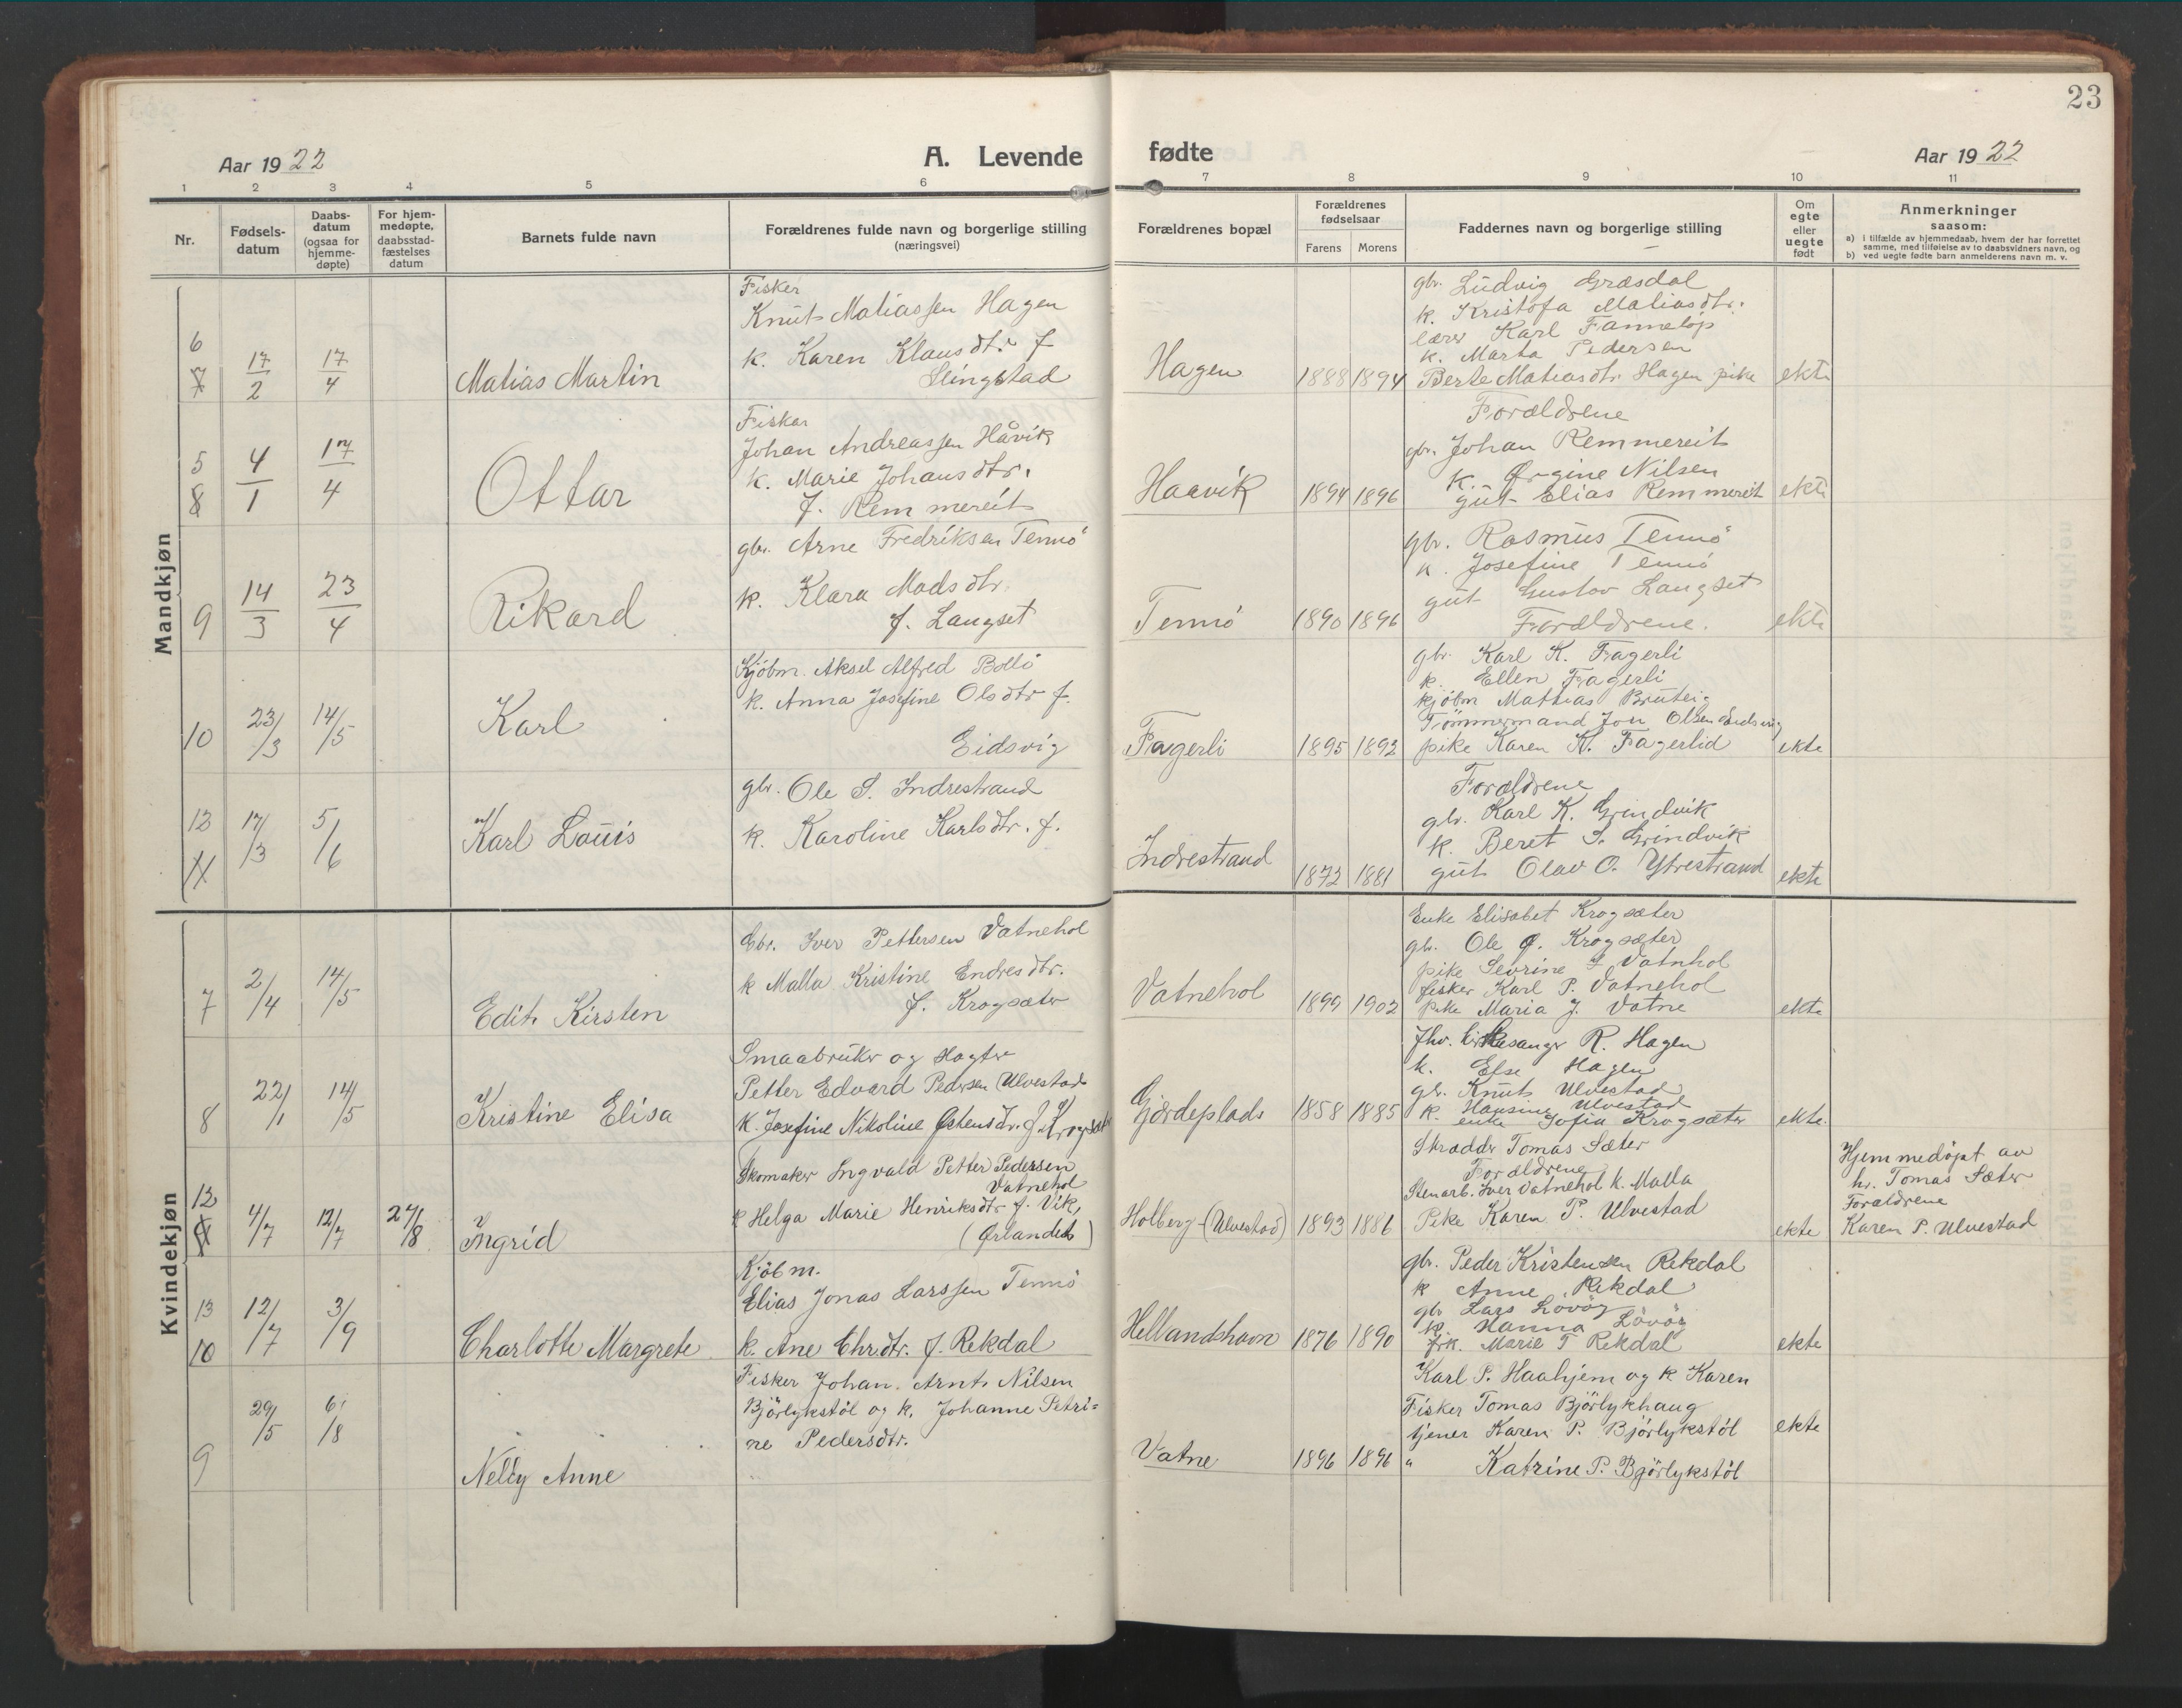 23
Aar 1922
A. Levende fødte
Aar 1922
1 2 3 4 5 6 7 8 9 10 11
Nr.
Fødsels-
datum
Daabs-
datum
(ogsaa for
hjemme-
døpte)
For hjem-
medøpte,
daabsstad-
fæstelses
datum
Barnets fulde navn
Forældrenes fulde navn og borgerlige stilling
(næringsvei)
Forældrenes bopæl
Forældrenes
fødselsaar
Farens Morens
Faddernes navn og borgerlige stilling
Om
egte
eller
uegte
født
Anmerkninger
saasom:
a) i tilfælde av hjemmedaab, hvem der har forrettet
samme, med tilføielse av to daabsvidners navn, og
b) ved uegte fødte barn anmelderens navn m. v.
Mandkjøn
6
7
17/2
17/4
Matias Martin
Fisker
Knut Matiassen Hagen
k. Karen Klausdtr. f
Slingstad
Hagen
1888 1894
gbr. Ludvig Græsdal
k. Kristofa Matiasdtr.
lærer Karl Fanneløp
k. Marta Pedersen
Berte Matiasdtr. Hagen pike
ekte
5
8
4/1
17/4
Ottar
Fisker
Johan Andreassen Håvik
k. Marie Johansdtr.
f. Remmereit
Haavik
1894 1896
Forældrene
gbr. Johan Remmereit
k. Ørgine Nilsen
gut Elias Remmereit
ekte
9
14/3
23/4
Rikard
gbr. Arne Fredriksen Tennö
k. Klara Madsdtr.
f. Langset
Tennö
1890 1896
gbr. Rasmus Tennö
k. Josefine Tennö
gut Gustav Langset
Forældrene.
ekte
10
23/3
14/5
Karl
Kjöbm. Aksel Alfred Bollö
k. Anna Josefine Olsdtr f.
Eidsvig
Fagerli
1895 1892
gbr. Karl K. Fagerli
k. Ellen Fagerli
kjöbm Mathias Bruteig
Tömmermand Jon Olsen Eidsvig
pike Karen K. Fagerlid
ekte
12
11
17/3
5/6
Karl Louis
gbr. Ole S. Indrestrand
k. Karoline Karlsdtr. f.
Indrestrand
1872 1881
Forældrene
gbr. Karl K. Grindvik
k. Beret S. Grindvik
gut Olav O. Ytrestrand
ekte
Kvindekjøn
7
2/4
14/5
Edit Kirsten
Gbr. Iver Pettersen Vatnehol
k Malla Kristine Endresdtr.
f. Krogsæter
Vatnehol
1899 1902
Enke Elisabet Krogsæter
gbr. Ole Ø. Krogsæter
pike Sevrine I Vatnhol
fisker Karl P. Vatnehol
pike Maria J. Vatne
ekte
8
22/1
14/5
Kristine Elisa
Smaabruker og Hogter
Petter Edvard Pedersen Ulvestad
k. Josefine Nikoline Østensdr. f. Krogsæter
Gjerdeplads
1858 1885
fhv. kirkesanger R. Hagen
k. Else Hagen
gbr. Knut Ulvestad
k. Hansine Ulvestad
enke Sofia Krogsæter
ekte.
12
4/7
12/7
27/8
Ingrid
Skomaker Ingvald Petter Pedersen
Vatnehol
k Helga Marie Henriksdtr f. Vik,
(Ørlandet)
Holberg (Ulvestad)
1893 1886
Skrædder Tomas Sæter
Forældrene
Stenarb. Iver Vatnehol k. Malla
Pike Karen P. Ulvestad
ekte
Hjemmedøpt av
hr. Tomas Sæter
Forældrene
Karen P. Ulvestad
13
10
12/7
3/9
Charlotte Margrete
Kjöbm.
Elias Jonas Larssen Tennö
k. Ane Chrdtr. f. Rekdal
Hellandshavn
1876 1890
gbr. Peder Kristensen Rekdal
k Anne Rekdal
gbr Lars Lövöy
k. Hanna Lövöy
frk. Marie T Rekdal
ekte
9
29/5
6/8
Nelly Anne
Fisker Johan Arnt Nilsen
Björlykstöl og k. Johanne Petri=
ne Pedersdtr.
Vatne
1896 1896
Karl P. Haahjem og k Karen
Fisker Tomas Björlykhaug
tjener Karen P. Björlykstöl
" Katrine P. Björlykstöl
ekte